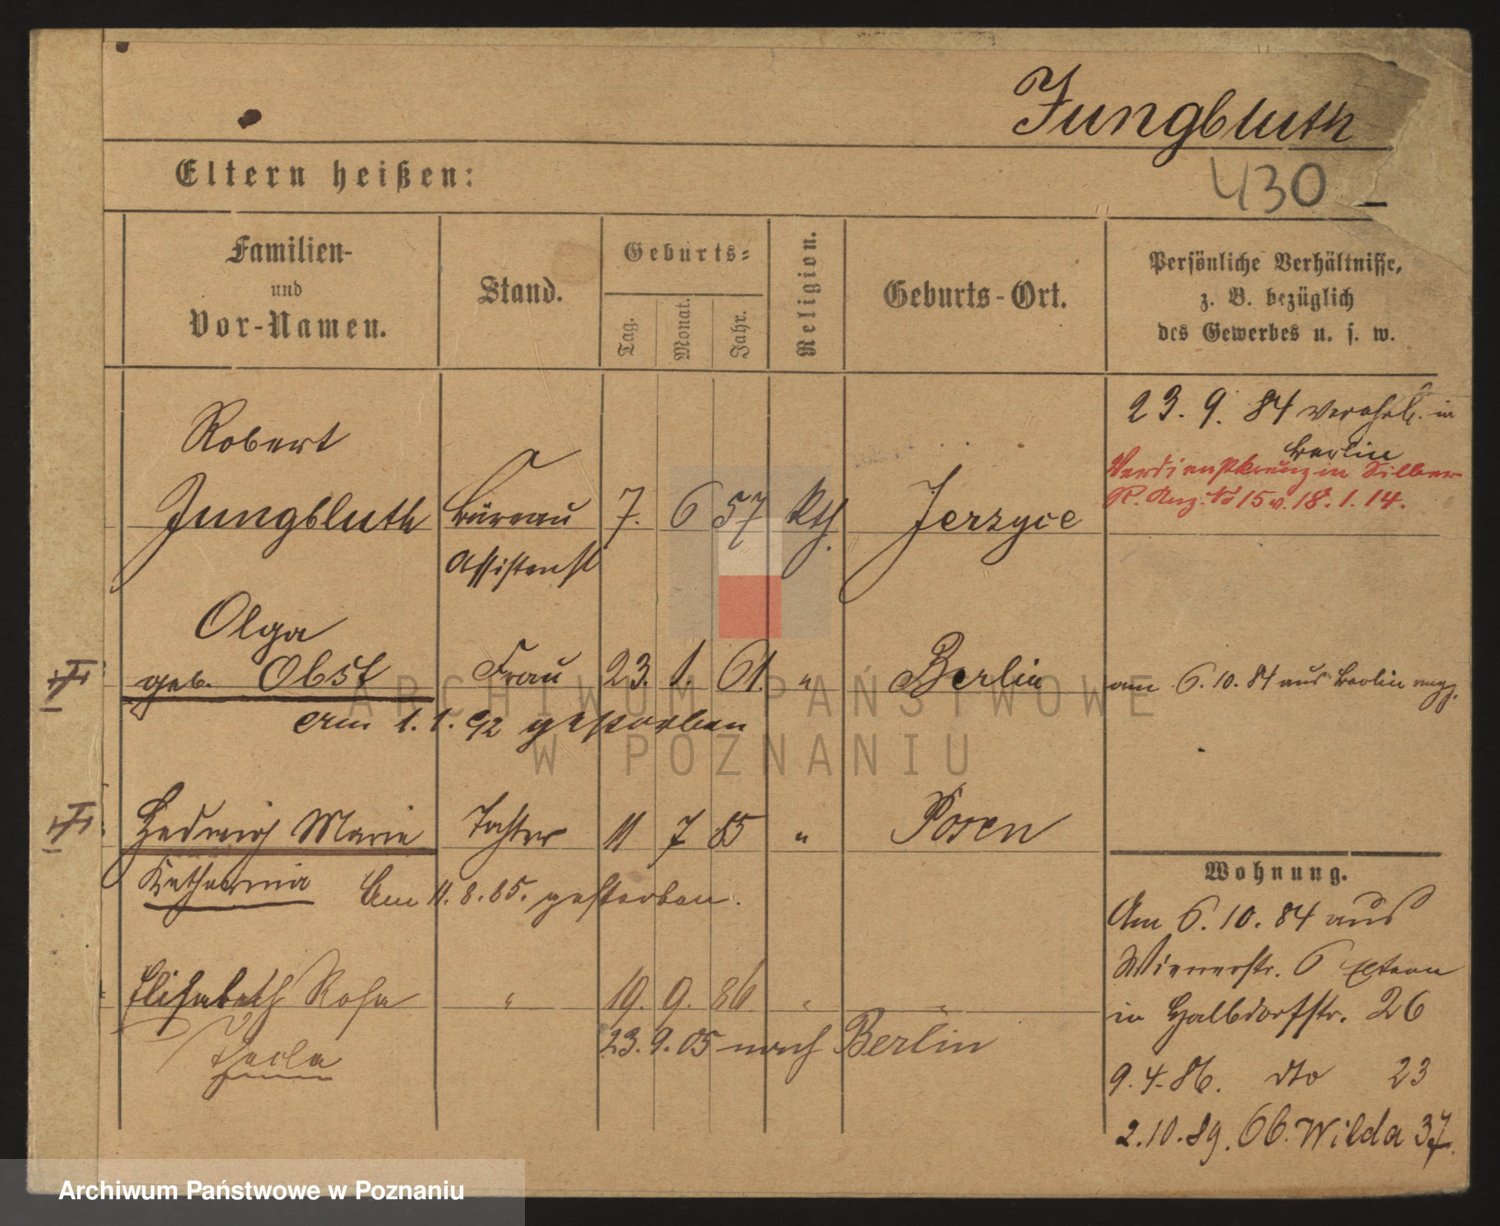 Jungbluth
430
Eltern heißen:
Familien- und Vor-Namen.
Stand.
Geburts-
Tag.
Monat.
Jahr.
Religion.
Geburts-Ort.
Persönliche Verhältnisse,
z. B. bezüglich
des Gewerbes u. s. w.
Robert
Jungbluth
Büreau
Assistent
7. 6 57 kth. Jerzyce
23. 9. 84 verehel. in
Berlin
Verdienstkreuz in Silber
R. Anz. No 15 v. 18. 1. 14.
Olga
geb. Obst Frau 23. 1. 61. " Berlin
am 6. 10. 84 aus Berlin
am 1. 1. 92 gestorben
Hedwig Marie Tochter 11 7 85 " Posen
Katharina Am 11. 8. 85. gestorben.
Elisabeth Rosa " 19. 9. 86. "
Thecla
23. 9. 05 nach Berlin
Wohnung.
Am 6. 10. 84 aus
Wienerstr. 6
in Halbdorfstr. 26
9. 4. 86. dto 23
2. 10. 89. Ob. Wilda 37.
ARCHIWUM PAŃSTWOWE
W POZNANIU
Archiwum Państwowe w Poznaniu